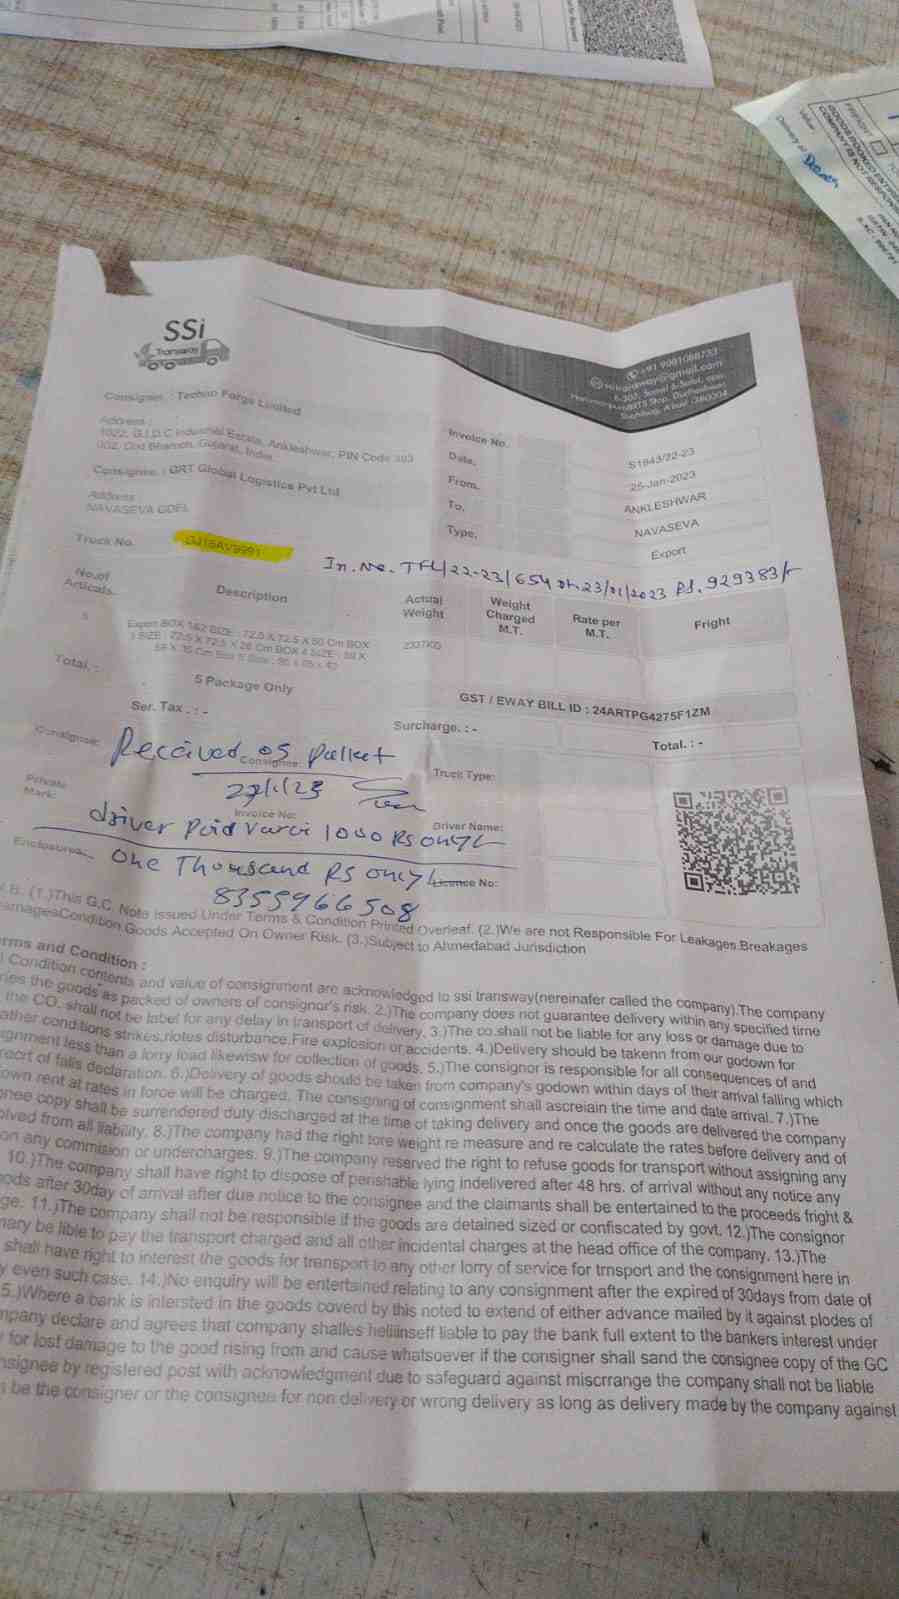 SSi
Transway
+91 9081088733
Consigner. : Techno Forge Limited
Address :
1022, G.I.D.C Industrial Estate, Ankleshwar, PIN Code 393
002, Dist Bharuch, Gujarat, India.
Consignee. : GRT Global Logistics Pvt Ltd
Address :
NAVASEVA
Truck No.
Invoice No. S1843/22-23
Date. 25-Jan-2023
From. ANKLESHWAR
To. NAVASEVA
Type. Export
In.No. TFL/22-23/654 dt.23/01/2023 Rs. 929383/-
No.of Articals. Description Actual Weight Weight Charged M.T. Rate per M.T. Fright
5
Total. : 5 Package Only
GST / EWAY BILL ID : 24ARTPG4275F1ZM
Ser. Tax . : - Surcharge. : - Total. : -
Consignor: Received 05 Pallet
Consignee: Truck Type:
Private Mark: Invoice No: Driver Name:
driver Paid Varai 1000 Rs only
Enclosures One Thousand Rs only Licence No:
8355966508
N.B. (1.)This G.C. Note Issued Under Terms & Condition Printed Overleaf. (2.)We are not Responsible For Leakages.Breakages
DamagesCondition.Goods Accepted On Owner Risk. (3.)Subject to Ahmedabad Jurisdiction
Terms and Condition :
Condition contents and value of consignment are acknowledged to ssi transway(nereinafer called the company).The company
the goods as packed of owners of consignor's risk. 2.)The company does not guarantee delivery within any specified time
the CO. shall not be label for any delay in transport of delivery. 3.)The co.shall not be liable for any loss or damage due to
conditions strikes,riotes disturbance.Fire explosion or accidents. 4.)Delivery should be takenn from our godown for
less than a lorry load likewisw for collection of goods. 5.)The consignor is responsible for all consequences of and
of falls declaration. 6.)Delivery of goods should be taken from company's godown within days of their arrival falling which
rent at rates in force will be charged. The consigning of consignment shall ascreiain the time and date arrival. 7.)The
copy shall be surrendered duty discharged at the time of taking delivery and once the goods are delivered the company
from all liability. 8.)The company had the right tore weight re measure and re calculate the rates before delivery and of
on any commision or undercharges. 9.)The company reserved the right to refuse goods for transport without assigning any
10.)The company shall have right to dispose of perishable lying indelivered after 48 hrs. of arrival without any notice any
after 30day of arrival after due notice to the consignee and the claimants shall be entertained to the proceeds fright &
11.)The company shall not be responsible if the goods are detained sized or confiscated by govt. 12.)The consignor
be lible to pay the transport charged and all other incidental charges at the head office of the company. 13.)The
shall have right to interest the goods for transport to any other lorry of service for trnsport and the consignment here in
even such case. 14.)No enquiry will be entertained relating to any consignment after the expired of 30days from date of
5.)Where a bank is intersted in the goods coverd by this noted to extend of either advance mailed by it against plodes of
declare and agrees that company shalles helliinseff liable to pay the bank full extent to the bankers interest under
for lost damage to the good rising from and cause whatsoever if the consigner shall sand the consignee copy of the GC
by registered post with acknowledgment due to safeguard against miscrrange the company shall not be liable
be the consigner or the consignee for non delivery or wrong delivery as long as delivery made by the company against